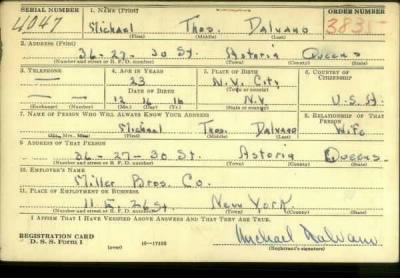 SERIAL NUMBER 1. NAME (Print) ORDER NUMBER
4047 Michael Thos. Dalvano 3835
(First) (Middle) (Last)
2. ADDRESS (Print)
36-27-30 St. Astoria Queens
(Number and street or R. F. D. number) (Town) (County) (State)
3. TELEPHONE 4. AGE IN YEARS 5. PLACE OF BIRTH 6. COUNTRY OF CITIZENSHIP
23 N.Y. City
DATE OF BIRTH (Town or county)
12 16 16 N.Y. U.S.A.
(Exchange) (Number) (Mo.) (Day) (Yr.) (State or country)
7. NAME OF PERSON WHO WILL ALWAYS KNOW YOUR ADDRESS 8. RELATIONSHIP OF THAT PERSON
Michael Thos. Dalvano Wife
(Mr., Mrs., Miss) (First) (Middle) (Last)
9. ADDRESS OF THAT PERSON
36-27-30 St. Astoria Queens
(Number and street or R. F. D. number) (Town) (County) (State)
10. EMPLOYER'S NAME
Miller Bros. Co.
11. PLACE OF EMPLOYMENT OR BUSINESS
11 E. 26 St. New York
(Number and street or R. F. D. number) (Town) (County) (State)
I AFFIRM THAT I HAVE VERIFIED ABOVE ANSWERS AND THAT THEY ARE TRUE.
REGISTRATION CARD
D. S. S. Form 1 (over) 16-17105 Michael Dalvano
(Registrant's signature)